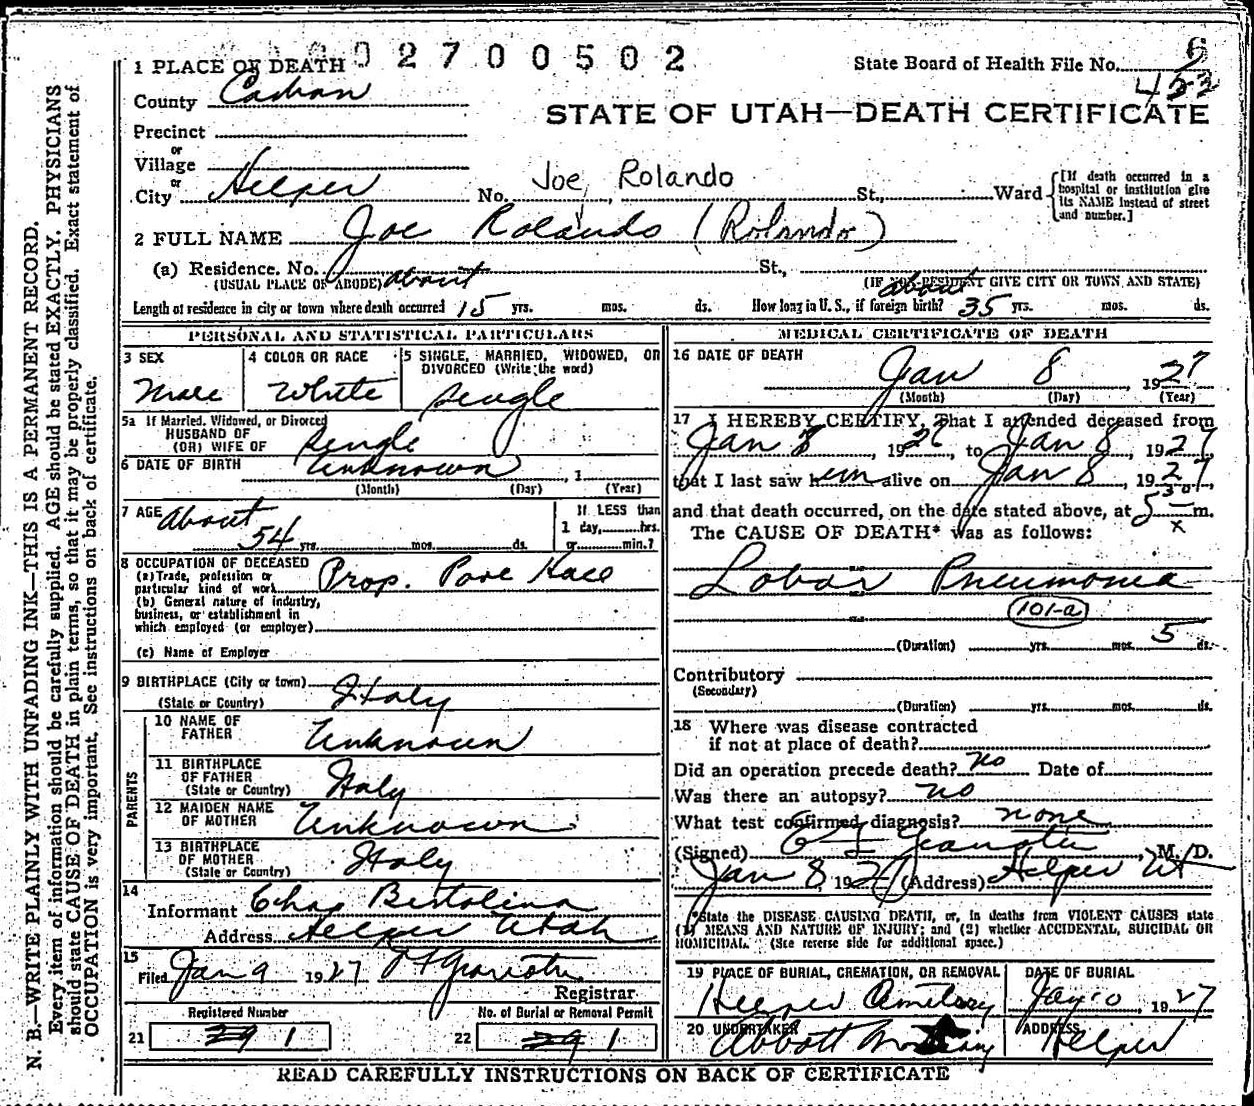 N. B.—WRITE PLAINLY WITH UNFADING INK—THIS IS A PERMANENT RECORD.
Every item of information should be carefully supplied. AGE should be stated EXACTLY. PHYSICIANS
should state CAUSE OF DEATH in plain terms, so that it may be properly classified. Exact statement of
OCCUPATION is very important. See instructions on back of certificate.
002700502
1 PLACE OF DEATH
State Board of Health File No. 6
423
County
STATE OF UTAH—DEATH CERTIFICATE
Precinct
or
Village
or
City Helper No. Joe Rolando St., Ward
[If death occurred in a
hospital or institution give
its NAME instead of street
and number.]
2 FULL NAME Joe Rolando (Rolando)
(a) Residence. No. St.,
(USUAL PLACE OF ABODE) (IF NON-RESIDENT GIVE CITY OR TOWN AND STATE)
Length of residence in city or town where death occurred about 15 yrs. mos. ds. How long in U. S., if foreign birth? about 35 yrs. mos. ds.
PERSONAL AND STATISTICAL PARTICULARS
3 SEX Male
4 COLOR OR RACE White
5 SINGLE, MARRIED, WIDOWED, OR
DIVORCED (Write the word)
Single
5a If Married, Widowed, or Divorced
HUSBAND OF
(OR) WIFE OF Single
6 DATE OF BIRTH Unknown , 1
(Month) (Day) (Year)
7 AGE About
54 yrs. mos. ds.
If LESS than
1 day, hrs.
or min.?
8 OCCUPATION OF DECEASED
(a) Trade, profession or
particular kind of work Prop. Pool Hall
(b) General nature of industry,
business, or establishment in
which employed (or employer)
(c) Name of Employer
9 BIRTHPLACE (City or town)
(State or Country) Italy
PARENTS
10 NAME OF
FATHER Unknown
11 BIRTHPLACE
OF FATHER
(State or Country) Italy
12 MAIDEN NAME
OF MOTHER Unknown
13 BIRTHPLACE
OF MOTHER
(State or Country) Italy
14
Informant Chas Bertolina
Address Helper Utah
15
Filed Jan 9 1927
Registrar
Registered Number
21 29 1
No. of Burial or Removal Permit
22 29 1
MEDICAL CERTIFICATE OF DEATH
16 DATE OF DEATH
Jan 8 , 1927
(Month) (Day) (Year)
17 I HEREBY CERTIFY, That I attended deceased from
Jan 3 , 192 , to Jan 8 , 1927
that I last saw him alive on Jan 8 , 1927,
and that death occurred, on the date stated above, at 5 30 m.
x
The CAUSE OF DEATH* was as follows:
Lobar Pneumonia
101-a
(Duration) yrs. mos. 5 ds.
Contributory
(Secondary)
(Duration) yrs. mos. ds.
18 Where was disease contracted
if not at place of death?
Did an operation precede death? no Date of
Was there an autopsy? no
What test confirmed diagnosis? none
(Signed) , M. D.
Jan 8, 192 (Address) Helper Ut
*State the DISEASE CAUSING DEATH, or, in deaths from VIOLENT CAUSES state
(1) MEANS AND NATURE OF INJURY; and (2) whether ACCIDENTAL, SUICIDAL OR
HOMICIDAL. (See reverse side for additional space.)
19 PLACE OF BURIAL, CREMATION, OR REMOVAL
Helper Cemetery
DATE OF BURIAL
Jan 10 , 1927
20 UNDERTAKER
Abbott
ADDRESS
Helper
READ CAREFULLY INSTRUCTIONS ON BACK OF CERTIFICATE